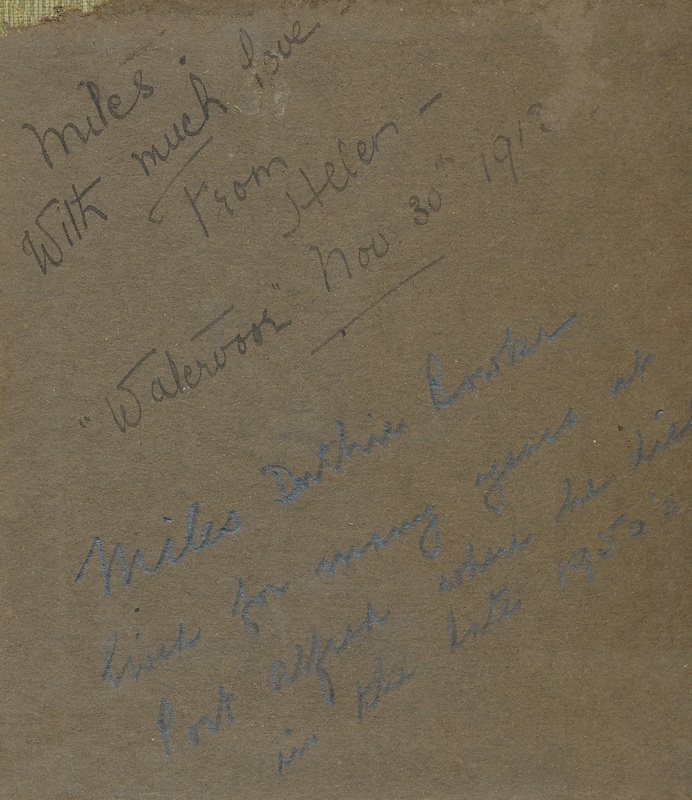 Miles.
With much love
From
Helen -
"Watervoor" Nov. 30th 191
Miles Duthie Bowker
lived for many years at
Port Alfred where he died
in the late 1950's